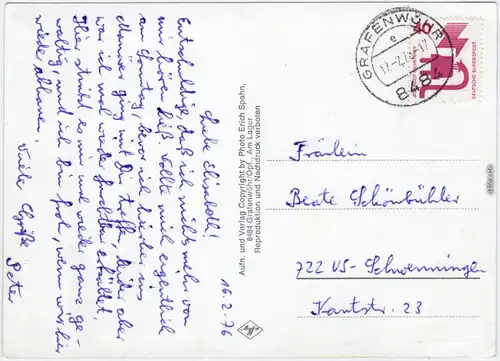 16.2.76
Liebe Elisabeth!
Entschuldige, daß ich nichts mehr von
mir hören ließ. Wollte mich eigentlich
am Sonntag, bevor ich hierher ins
Manöver ging mit Dir treffen, leider aber
war ich mal wieder
Hier stinkt es mir mal wieder ganz ge-
waltig, und ich bin froh, wenn wir hier
wieder abhauen.
Viele Grüße
Peter
Aufn. und Verlag Copyright by Photo Erich Spahn,
8484 Grafenwöhr/Opf., Am Lager
Reproduktion und Nachdruck verboten
Agfa
GRAFENWÖHR
e
17
8484
40
DEUTSCHE BUNDESPOST
Fräulein
Beate Schönbühler
722 VS-Schwenningen
Kantstr. 23